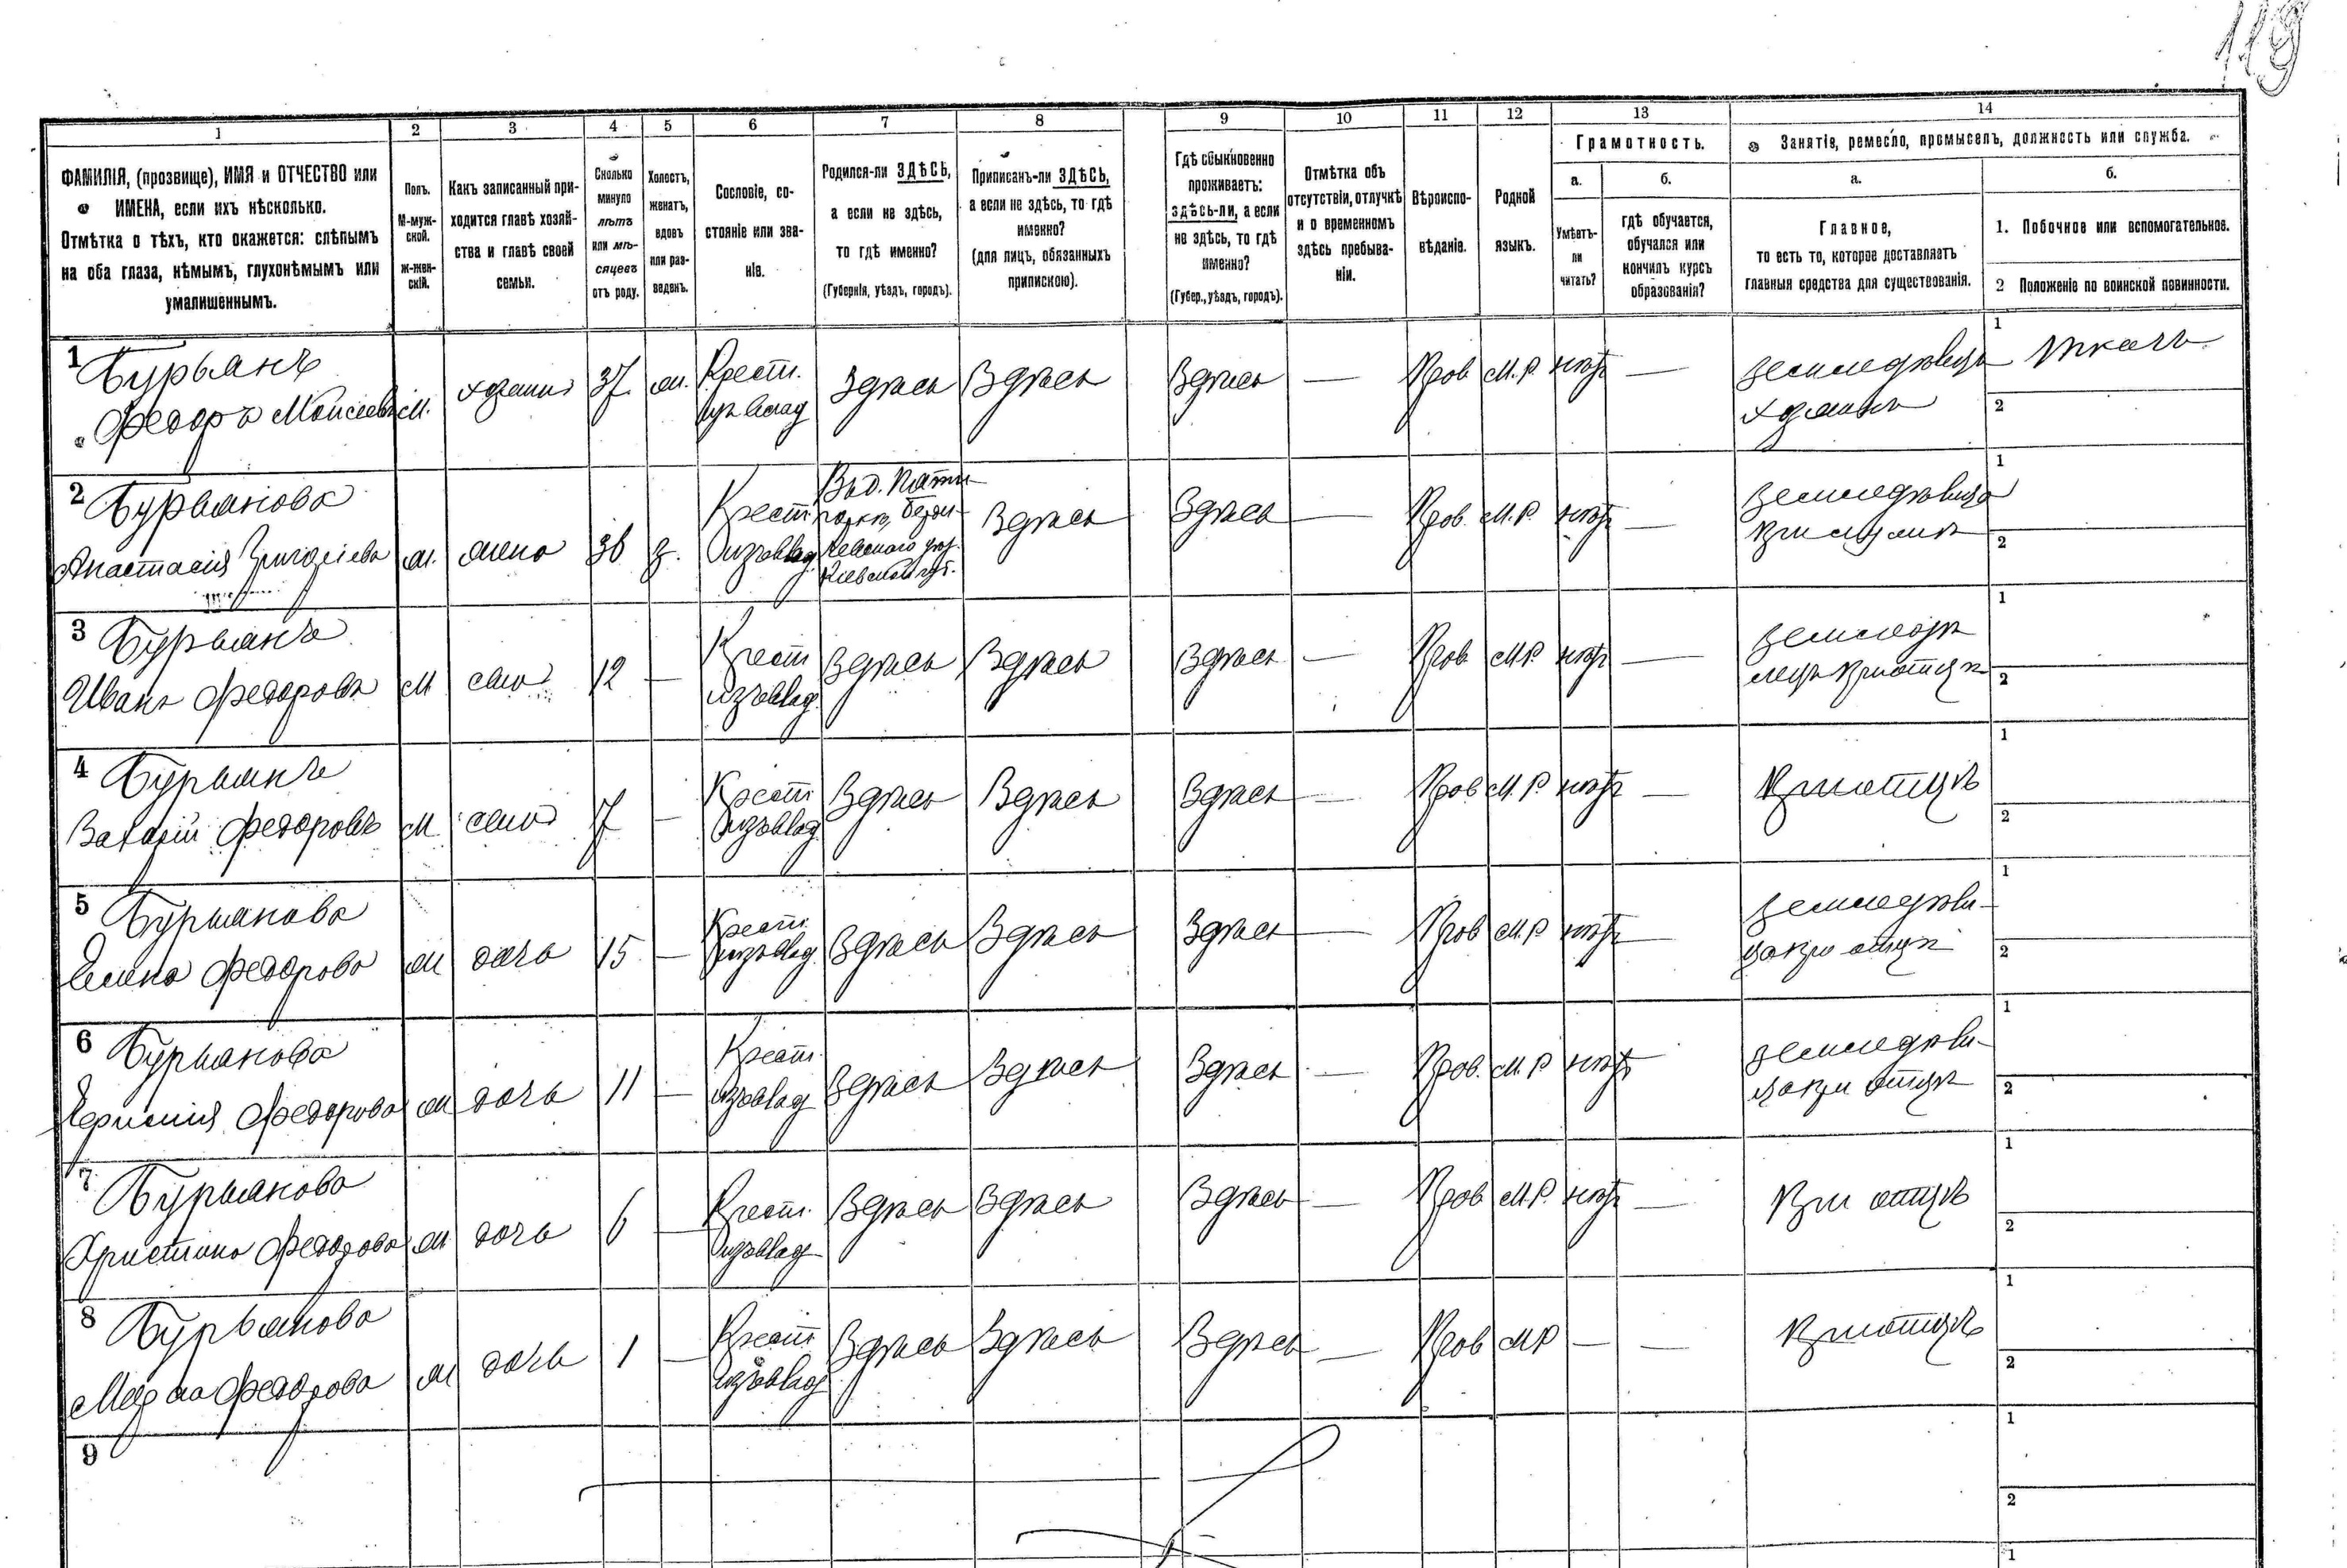 119
1 2 3 4 5 6 7 8 9 10 11 12 13 14
ФАМИЛІЯ, (прозвище), ИМЯ и ОТЧЕСТВО или
ИМЕНА, если ихъ нѣсколько.
Отмѣтка о тѣхъ, кто окажется: слѣпымъ
на оба глаза, нѣмымъ, глухонѣмымъ или
умалишеннымъ.
Полъ.
М-муж-
ской.
ж-жен-
скій.
Какъ записанный при-
ходится главѣ хозяй-
ства и главѣ своей
семьи.
Сколько
минуло
лѣтъ
или мѣ-
сяцевъ
отъ роду.
Холостъ,
женатъ,
вдовъ
или раз-
веденъ.
Сословіе, со-
стояніе или зва-
ніе.
Родился-ли ЗДѢСЬ,
а если не здѣсь,
то гдѣ именно?
(Губернія, уѣздъ, городъ).
Приписанъ-ли ЗДѢСЬ,
а если не здѣсь, то гдѣ
именно?
(для лицъ, обязанныхъ
припискою).
Гдѣ обыкновенно
проживаетъ:
здѣсь-ли, а если
не здѣсь, то гдѣ
именно?
(Губер., уѣздъ, городъ).
Отмѣтка объ
отсутствіи, отлучкѣ
и о временномъ
здѣсь пребыва-
ніи.
Вѣроиспо-
вѣданіе.
Родной
языкъ.
Грамотность.
а.
Умѣетъ-
ли
читать?
б.
гдѣ обучается,
обучался или
кончилъ курсъ
образованія?
Занятіе, ремесло, промыселъ, должность или служба.
а.
Главное,
то есть то, которое доставляетъ
главныя средства для существованія.
б.
1. Побочное или вспомогательное.
2 Положеніе по воинской повинности.
1 Бурьянъ
Федоръ Моисеевъ М. хозяинъ 37 ж. Крест. Здѣсь Здѣсь Здѣсь — Пров М.Р. нѣтъ — земледѣлецъ 1 ткачь
хозяинъ 2
2 Бурьянова
Анастасія Григоріева ж. жена 36 з. Крест изъ влад Здѣсь Здѣсь — Пров. М.Р. нѣтъ — земледѣлица 1
Киевской губ. при мужѣ 2
3 Бурьянъ
Иванъ Федоровъ М сынъ 12 — Крест изъ влад Здѣсь Здѣсь Здѣсь — Пров М.Р. нѣтъ — земледѣ 1
лецъ при отцѣ 2
4 Бурьянъ
Ватазій Федоровъ М сынъ 7 — Крест изъ влад Здѣсь Здѣсь Здѣсь — Пров. М.Р. нѣтъ — При отцѣ 1
2
5 Бурьянова
Елена Федорова ж дочь 15 — Крест изъ влад Здѣсь Здѣсь Здѣсь — Пров М.Р. нѣтъ — земледѣли- 1
ца при отцѣ 2
6 Бурьянова
Федорова ж дочь 11 — Крест. изъ влад Здѣсь Здѣсь Здѣсь — Пров. М.Р нѣтъ — земледѣли- 1
ца при отцѣ 2
7 Бурьянова
Христина Федорова ж дочь 6 — Крест. изъ влад Здѣсь Здѣсь Здѣсь — Пров М.Р. нѣтъ — При отцѣ 1
2
8 Бурьянова
Марья Федорова ж дочь 1 — Крест изъ влад Здѣсь Здѣсь Здѣсь — Пров МР — — При отцѣ 1
2
9 1
2
1